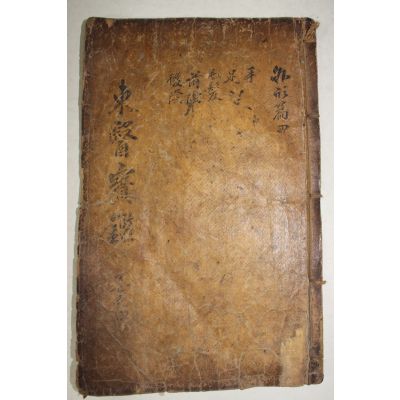 外形篇四
手
足
毛髮
前陰
後陰
東醫寶鑑